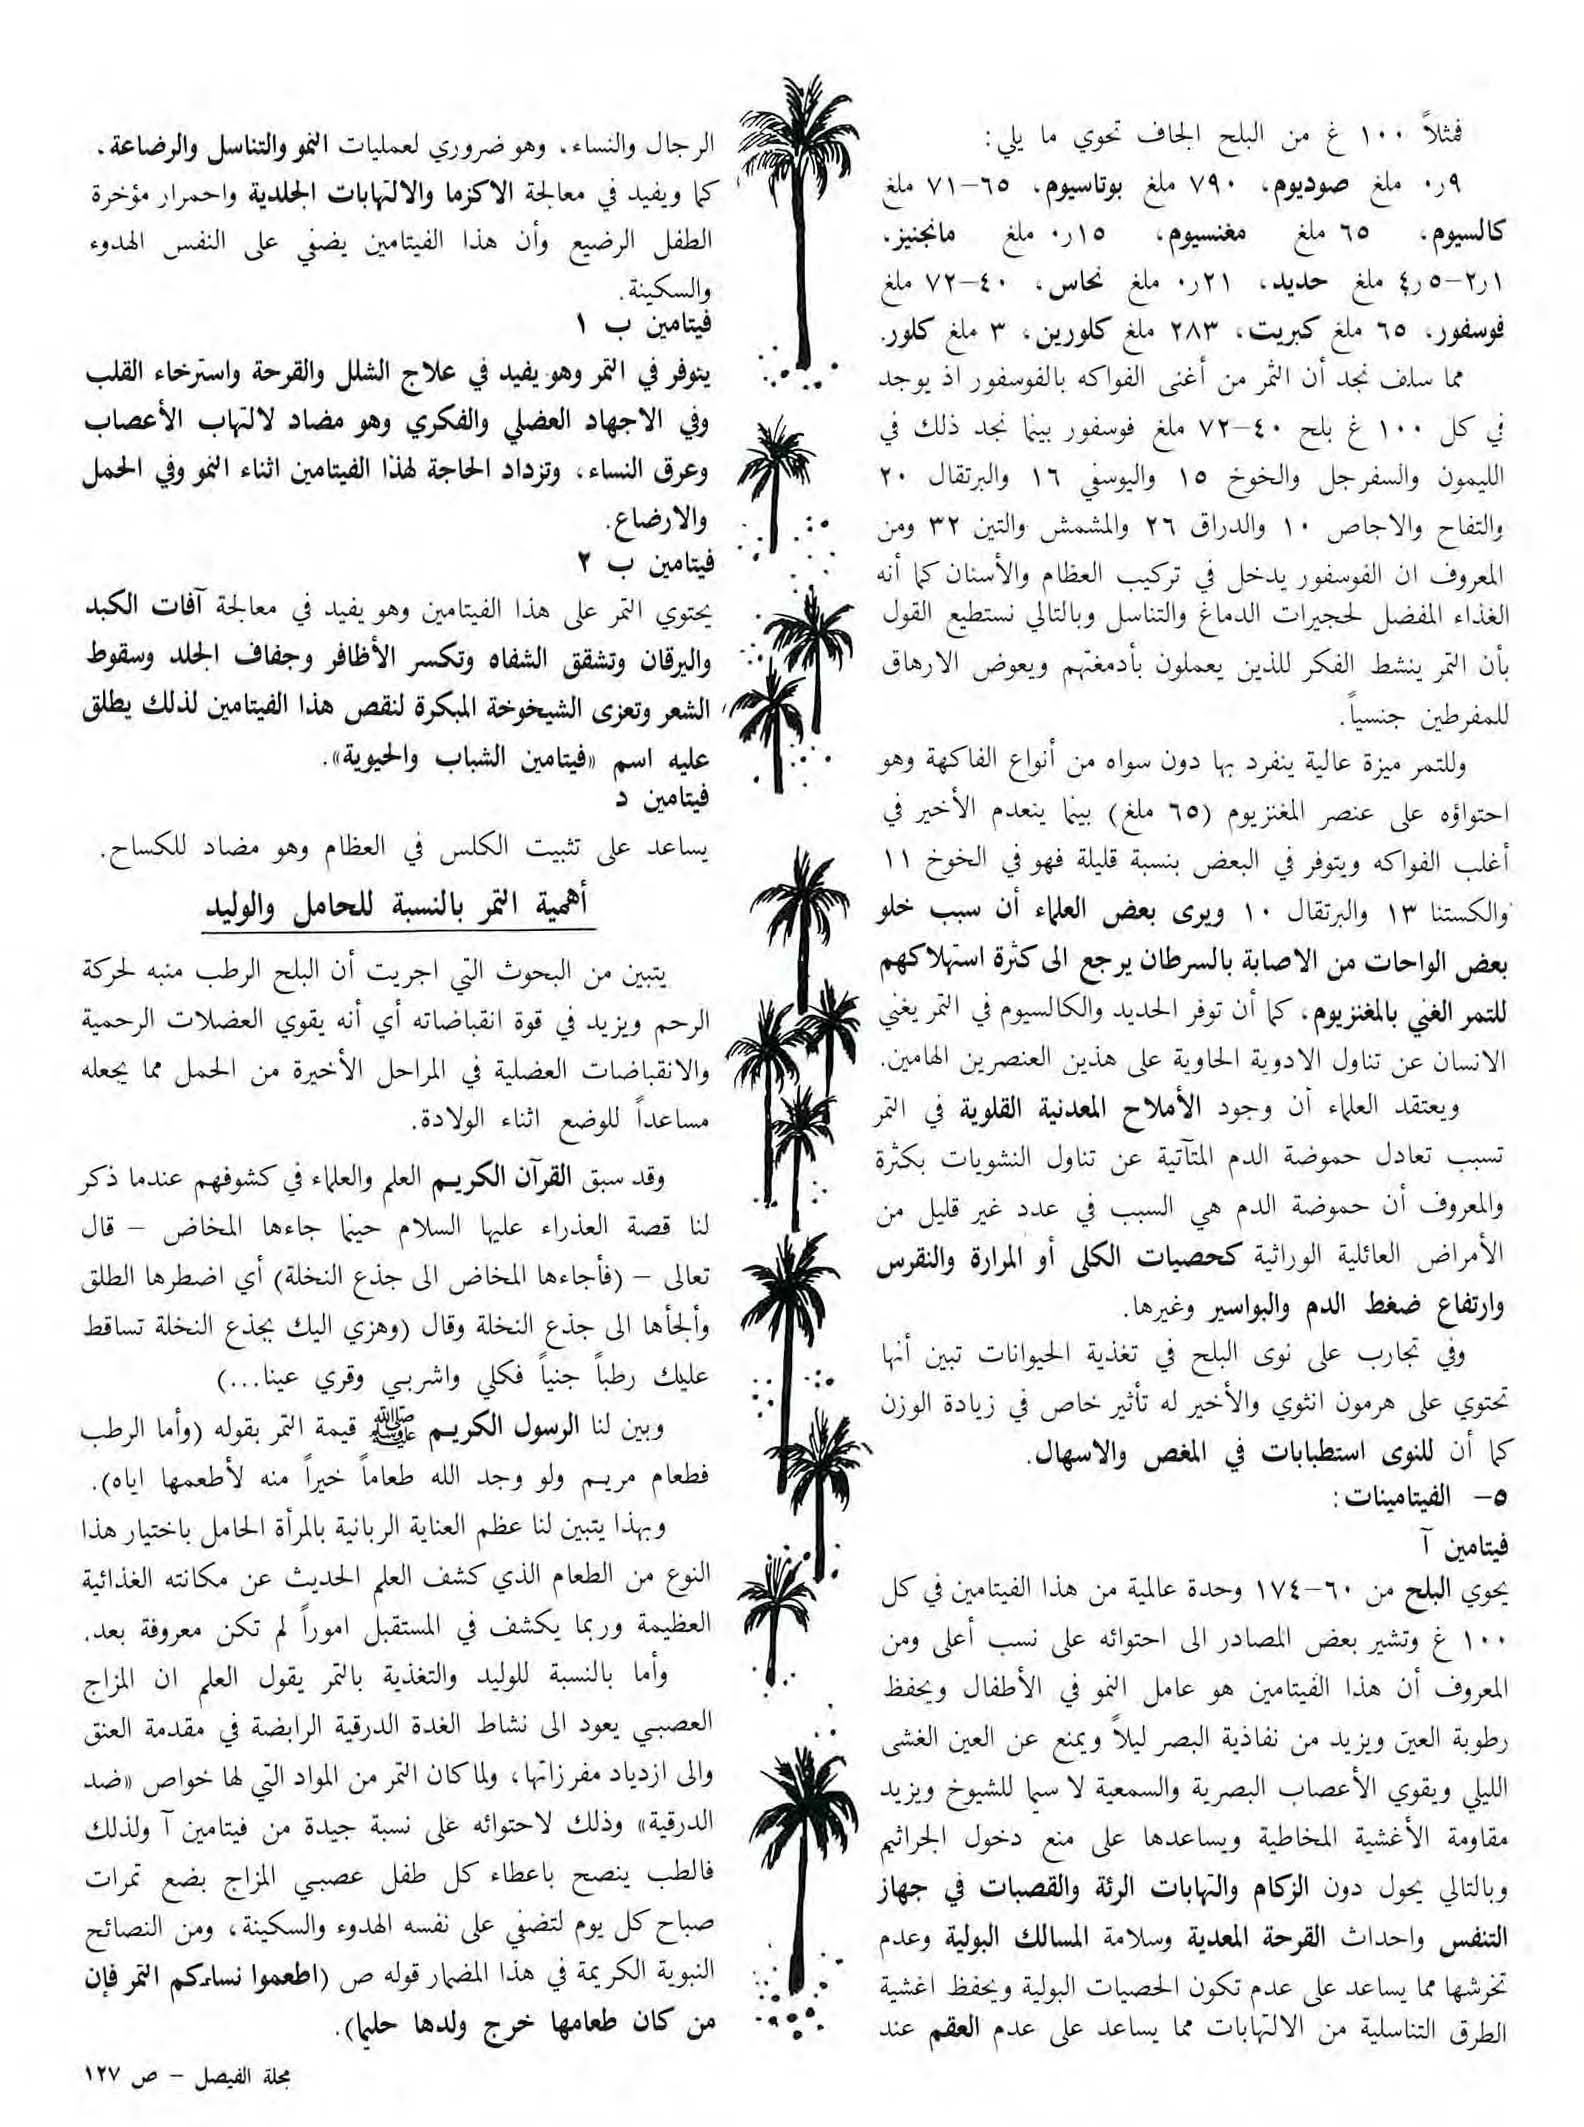 فمثلاً ١٠٠ غ من البلح الجاف تحوي ما يلي:
٠ر٩ ملغ صوديوم، ٧٩٠ ملغ بوتاسيوم، ٦٥-٧١ ملغ
كالسيوم، ٦٥ ملغ مغنسيوم، ٠ر١٥ ملغ مانجنيز،
٢ر١-٤ر٥ ملغ حديد، ٠ر٢١ ملغ نحاس، ٤٠-٧٢ ملغ
فوسفور، ٦٥ ملغ كبريت، ٢٨٣ ملغ كلورين، ٣ ملغ كلور.
مما سلف نجد أن الثمر من أغنى الفواكه بالفوسفور اذ يوجد
في كل ١٠٠ غ بلح ٤٠-٧٢ ملغ فوسفور بينما نجد ذلك في
الليمون والسفرجل والخوخ ١٥ واليوسفي ١٦ والبرتقال ٢٠
والتفاح والاجاص ١٠ والدراق ٢٦ والمشمش والتين ٣٢ ومن
المعروف ان الفوسفور يدخل في تركيب العظام والأسنان كما أنه
الغذاء المفضل لحجيرات الدماغ والتناسل وبالتالي نستطيع القول
بأن التمر ينشط الفكر للذين يعملون بأدمغتهم ويعوض الارهاق
للمفرطين جنسياً.
وللتمر ميزة عالية ينفرد بها دون سواه من أنواع الفاكهة وهو
احتواؤه على عنصر المغنزيوم (٦٥ ملغ) بينما ينعدم الأخير في
أغلب الفواكه ويتوفر في البعض بنسبة قليلة فهو في الخوخ ١١
والكستنا ١٣ والبرتقال ١٠ ويرى بعض العلماء أن سبب خلو
بعض الواحات من الاصابة بالسرطان يرجع الى كثرة استهلاكهم
للتمر الغني بالمغنزيوم، كما أن توفر الحديد والكالسيوم في التمر يغني
الانسان عن تناول الادوية الحاوية على هذين العنصرين الهامين.
ويعتقد العلماء أن وجود الأملاح المعدنية القلوية في التمر
تسبب تعادل حموضة الدم المتآتية عن تناول النشويات بكثرة
والمعروف أن حموضة الدم هي السبب في عدد غير قليل من
الأمراض العائلية الوراثية كحصيات الكلى أو المرارة والنقرس
وارتفاع ضغط الدم والبواسير وغيرها.
وفي تجارب على نوى البلح في تغذية الحيوانات تبين أنها
تحتوي على هرمون انثوي والأخير له تأثير خاص في زيادة الوزن
كما أن للنوى استطبابات في المغص والاسهال.
٥- الفيتامينات:
فيتامين آ
يحوي البلح من ٦٠-١٧٤ وحدة عالمية من هذا الفيتامين في كل
١٠٠ غ وتشير بعض المصادر الى احتوائه على نسب أعلى ومن
المعروف أن هذا الفيتامين هو عامل النمو في الأطفال ويحفظ
رطوبة العين ويزيد من نفاذية البصر ليلاً ويمنع عن العين الغشى
الليلي ويقوي الأعصاب البصرية والسمعية لا سيما للشيوخ ويزيد
مقاومة الأغشية المخاطية ويساعدها على منع دخول الجراثيم
وبالتالي يحول دون الزكام والتهابات الرئة والقصبات في جهاز
التنفس واحداث القرحة المعدية وسلامة المسالك البولية وعدم
تخرشها مما يساعد على عدم تكون الحصيات البولية ويحفظ اغشية
الطرق التناسلية من الالتهابات مما يساعد على عدم العقم عند
الرجال والنساء، وهو ضروري لعمليات النمو والتناسل والرضاعة،
كما ويفيد في معالجة الاكزما والالتهابات الجلدية واحمرار مؤخرة
الطفل الرضيع وأن هذا الفيتامين يضفي على النفس الهدوء
والسكينة.
فيتامين ب ١
يتوفر في التمر وهو يفيد في علاج الشلل والقرحة واسترخاء القلب
وفي الاجهاد العضلي والفكري وهو مضاد لالتهاب الأعصاب
وعرق النساء، وتزداد الحاجة لهذا الفيتامين اثناء النمو وفي الحمل
والارضاع.
فيتامين ب ٢
يحتوي التمر على هذا الفيتامين وهو يفيد في معالجة آفات الكبد
واليرقان وتشقق الشفاه وتكسر الأظافر وجفاف الجلد وسقوط
الشعر وتعزى الشيخوخة المبكرة لنقص هذا الفيتامين لذلك يطلق
عليه اسم «فيتامين الشباب والحيوية».
فيتامين د
يساعد على تثبيت الكلس في العظام وهو مضاد للكساح.
أهمية التمر بالنسبة للحامل والوليد
يتبين من البحوث التي اجريت أن البلح الرطب منبه لحركة
الرحم ويزيد في قوة انقباضاته أي أنه يقوي العضلات الرحمية
والانقباضات العضلية في المراحل الأخيرة من الحمل مما يجعله
مساعداً للوضع اثناء الولادة.
وقد سبق القرآن الكريم العلم والعلماء في كشوفهم عندما ذكر
لنا قصة العذراء عليها السلام حينما جاءها المخاض - قال
تعالى - (فأجاءها المخاض الى جذع النخلة) أي اضطرها الطلق
وألجأها الى جذع النخلة وقال (وهزي اليك بجذع النخلة تساقط
عليك رطباً جنياً فكلي واشربي وقري عينا...)
وبين لنا الرسول الكريم ﷺ قيمة التمر بقوله (وأما الرطب
فطعام مريم ولو وجد الله طعاماً خيراً منه لأطعمها اياه).
وبهذا يتبين لنا عظم العناية الربانية بالمرأة الحامل باختيار هذا
النوع من الطعام الذي كشف العلم الحديث عن مكانته الغذائية
العظيمة وربما يكشف في المستقبل اموراً لم تكن معروفة بعد.
وأما بالنسبة للوليد والتغذية بالتمر يقول العلم ان المزاج
العصبي يعود الى نشاط الغدة الدرقية الرابضة في مقدمة العنق
والى ازدياد مفرزاتها، ولما كان التمر من المواد التي لها خواص «ضد
الدرقية» وذلك لاحتوائه على نسبة جيدة من فيتامين آ ولذلك
فالطب ينصح باعطاء كل طفل عصبي المزاج بضع تمرات
صباح كل يوم لتضفي على نفسه الهدوء والسكينة، ومن النصائح
النبوية الكريمة في هذا المضمار قوله ص (اطعموا نساءكم التمر فإن
من كان طعامها خرج ولدها حليما).
مجلة الفيصل - ص ١٢٧